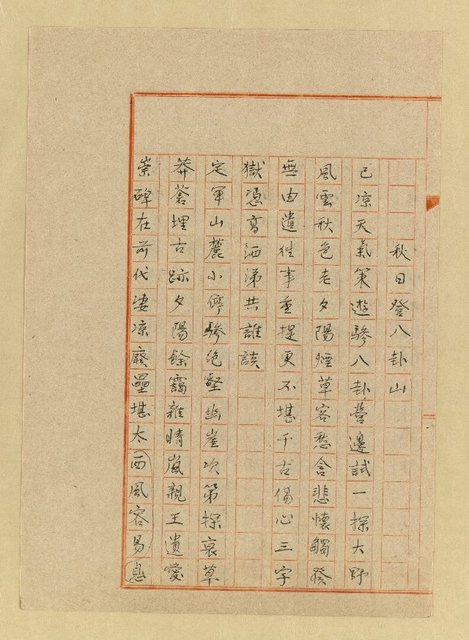 秋日登八卦山
已凉天氣策遊驂八卦營邊試一探大野
風雲秋色老夕陽煙草客愁含悲懷觸發
無由遣往事重提更不堪千古傷心三字
獄憑高洒涕共誰談
定軍山麓小停驂絕壑幽崖次第探衰草
莽蒼埋古跡夕陽餘靄雜晴嵐親王遺愛
崇碑在前代凄凉廢壘堪太西風容易息